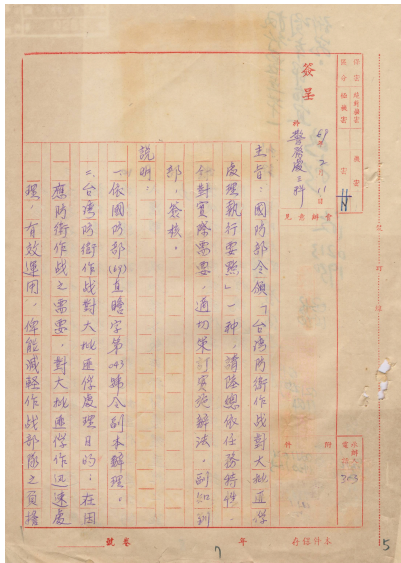 簽呈
於警務處三科
69年2月11日
主旨：國防部令頒「台灣防衛作战對大批匪俘
處理執行要點」一种，請陸總依任務特性，
令對實際需要，適切策訂實施辦法，副知到
部，簽核。
說明：
一、依國防部(69)直瞻字第043號令副本辦理。
二、台灣防衛作战對大批匪俘處理目的：在因
應防衛作战之需要，對大批匪俘作迅速處
理，有效運用，俾能減輕作战部隊之負擔
會辦意見
附件
承辦人
電話
303
本件保存
年
卷號
5